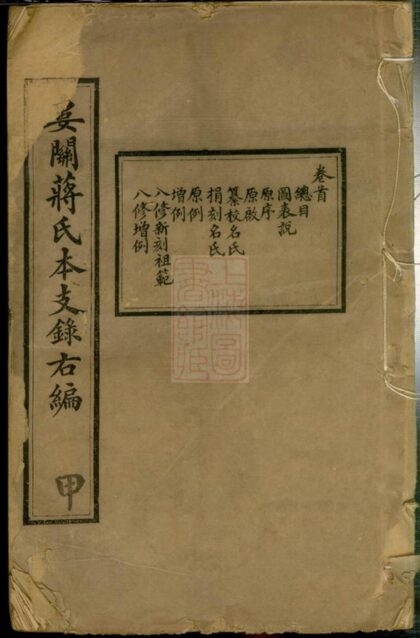 婁關蔣氏本支錄右編
甲
卷首
總目
圖表說
原序
原啟
纂校名氏
捐刻名氏
原例
增例
八修新刻祖範
八修增例
上海圖
書館藏